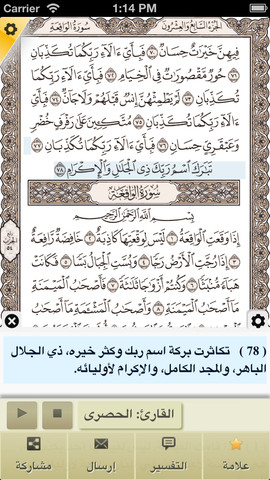 Carrier 1:14 PM
سُورَةُ الوَاقِعَةِ الجُزْءُ السَّابِعُ وَالعِشْرُونَ
فِيهِنَّ خَيْرَاتٌ حِسَانٌ ٧٠ فَبِأَيِّ ءَالَآءِ رَبِّكُمَا تُكَذِّبَانِ
٧١ حُورٌ مَّقْصُورَاتٌ فِي الْخِيَامِ ٧٢ فَبِأَيِّ ءَالَآءِ رَبِّكُمَا
تُكَذِّبَانِ ٧٣ لَمْ يَطْمِثْهُنَّ إِنسٌ قَبْلَهُمْ وَلَا جَآنٌّ ٧٤
فَبِأَيِّ ءَالَآءِ رَبِّكُمَا تُكَذِّبَانِ ٧٥ مُتَّكِئِينَ عَلَىٰ رَفْرَفٍ خُضْرٍ
وَعَبْقَرِيٍّ حِسَانٍ ٧٦ فَبِأَيِّ ءَالَآءِ رَبِّكُمَا تُكَذِّبَانِ ٧٧
تَبَارَكَ اسْمُ رَبِّكَ ذِي الْجَلَالِ وَالْإِكْرَامِ ٧٨
سُورَةُ الوَاقِعَةِ
بِسْمِ اللَّهِ الرَّحْمَٰنِ الرَّحِيمِ
إِذَا وَقَعَتِ الْوَاقِعَةُ ١ لَيْسَ لِوَقْعَتِهَا كَاذِبَةٌ ٢ خَافِضَةٌ رَّافِعَةٌ
٣ إِذَا رُجَّتِ الْأَرْضُ رَجًّا ٤ وَبُسَّتِ الْجِبَالُ بَسًّا ٥ فَكَانَتْ
هَبَآءً مُّنۢبَثًّا ٦ وَكُنتُمْ أَزْوَاجًا ثَلَاثَةً ٧ فَأَصْحَابُ الْمَيْمَنَةِ
مَآ أَصْحَابُ الْمَيْمَنَةِ ٨ وَأَصْحَابُ الْمَشْئَمَةِ مَآ أَصْحَابُ
( 78 ) تكاثرت بركة اسم ربك وكثر خيره، ذي الجلال
الباهر، والمجد الكامل، والإكرام لأوليائه.
القارئ: الحصرى
علامة التفسير إرسال مشاركة